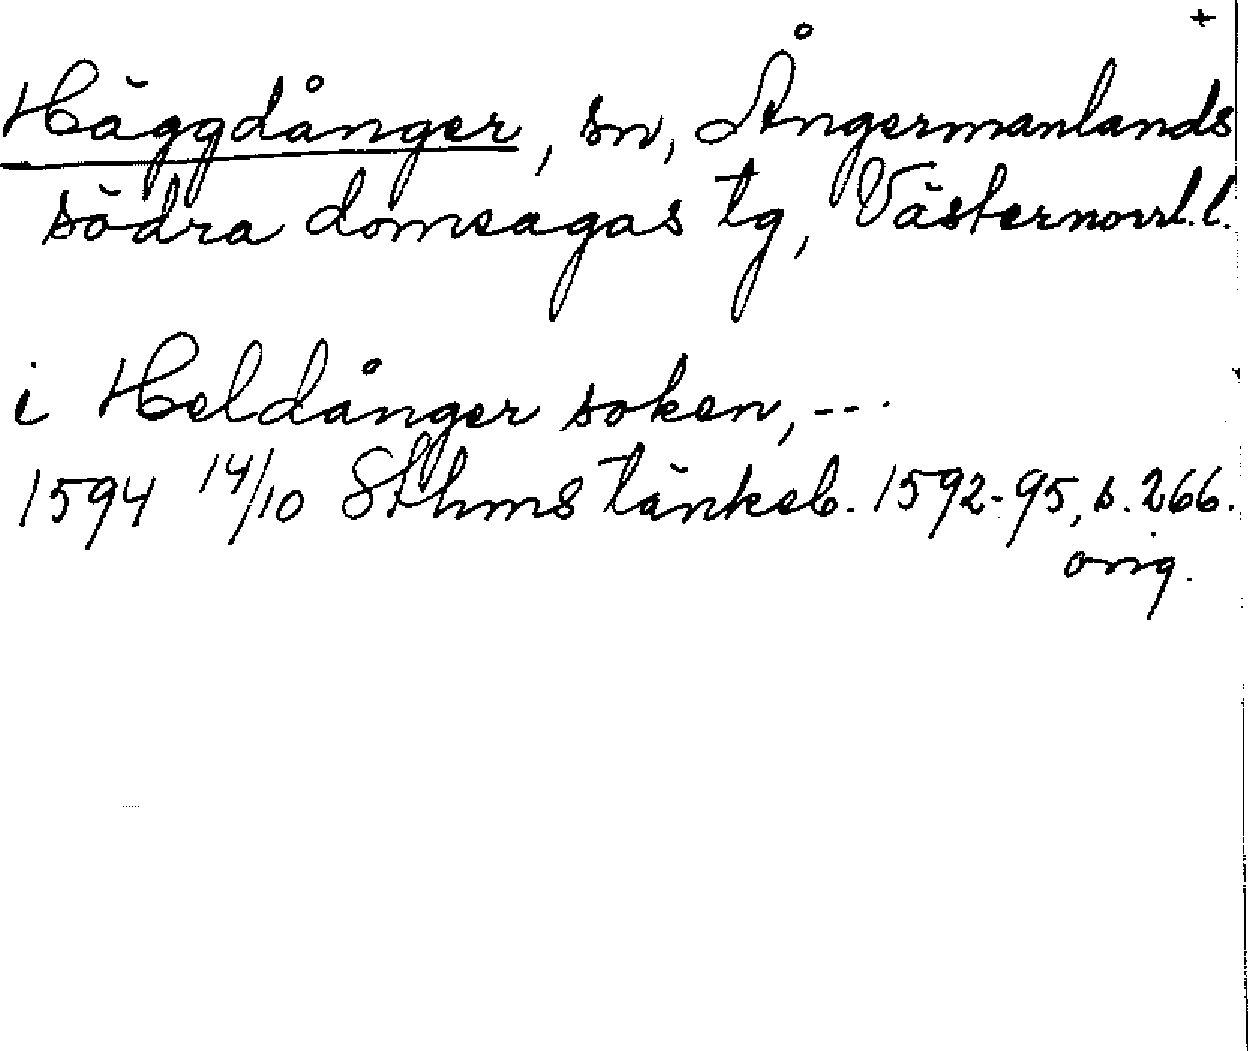 +
Häggdånger, sn, Ångermanlands
södra domsagas tg, Västernorrl.l.
i Heldånger soken, --.
1594 14/10 Sthms tänkeb. 1592-95, s. 266.
orig.